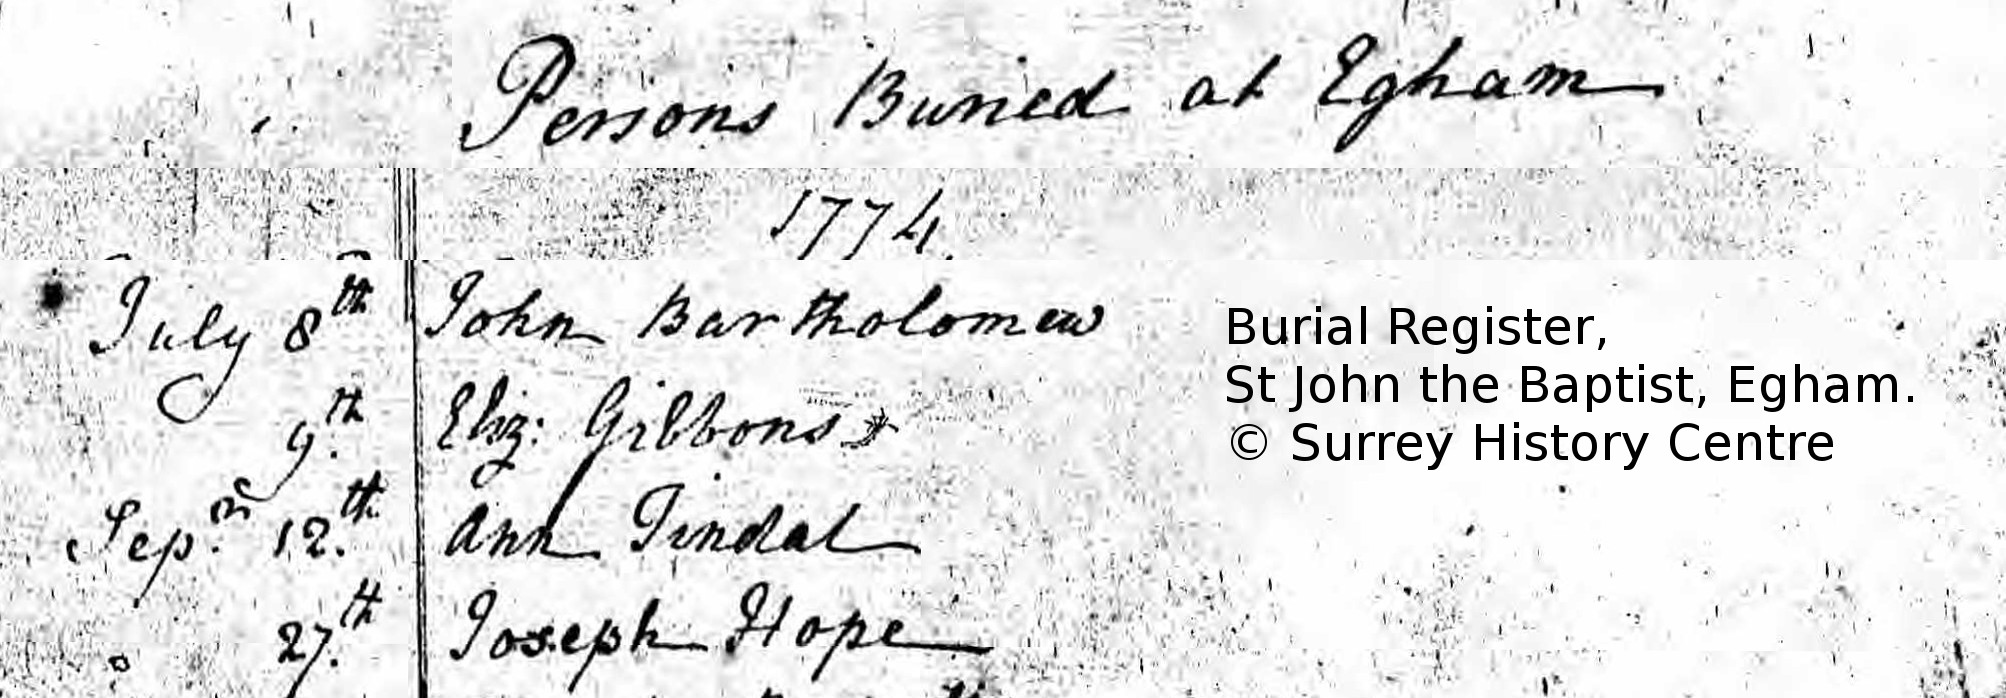 Persons Buried at Egham
1774
July 8th John Bartholomew
9.th Eliz: Gibbons
Sepr. 12.th Ann Tindal
27.th Joseph Hope
Burial Register,
St John the Baptist, Egham.
© Surrey History Centre